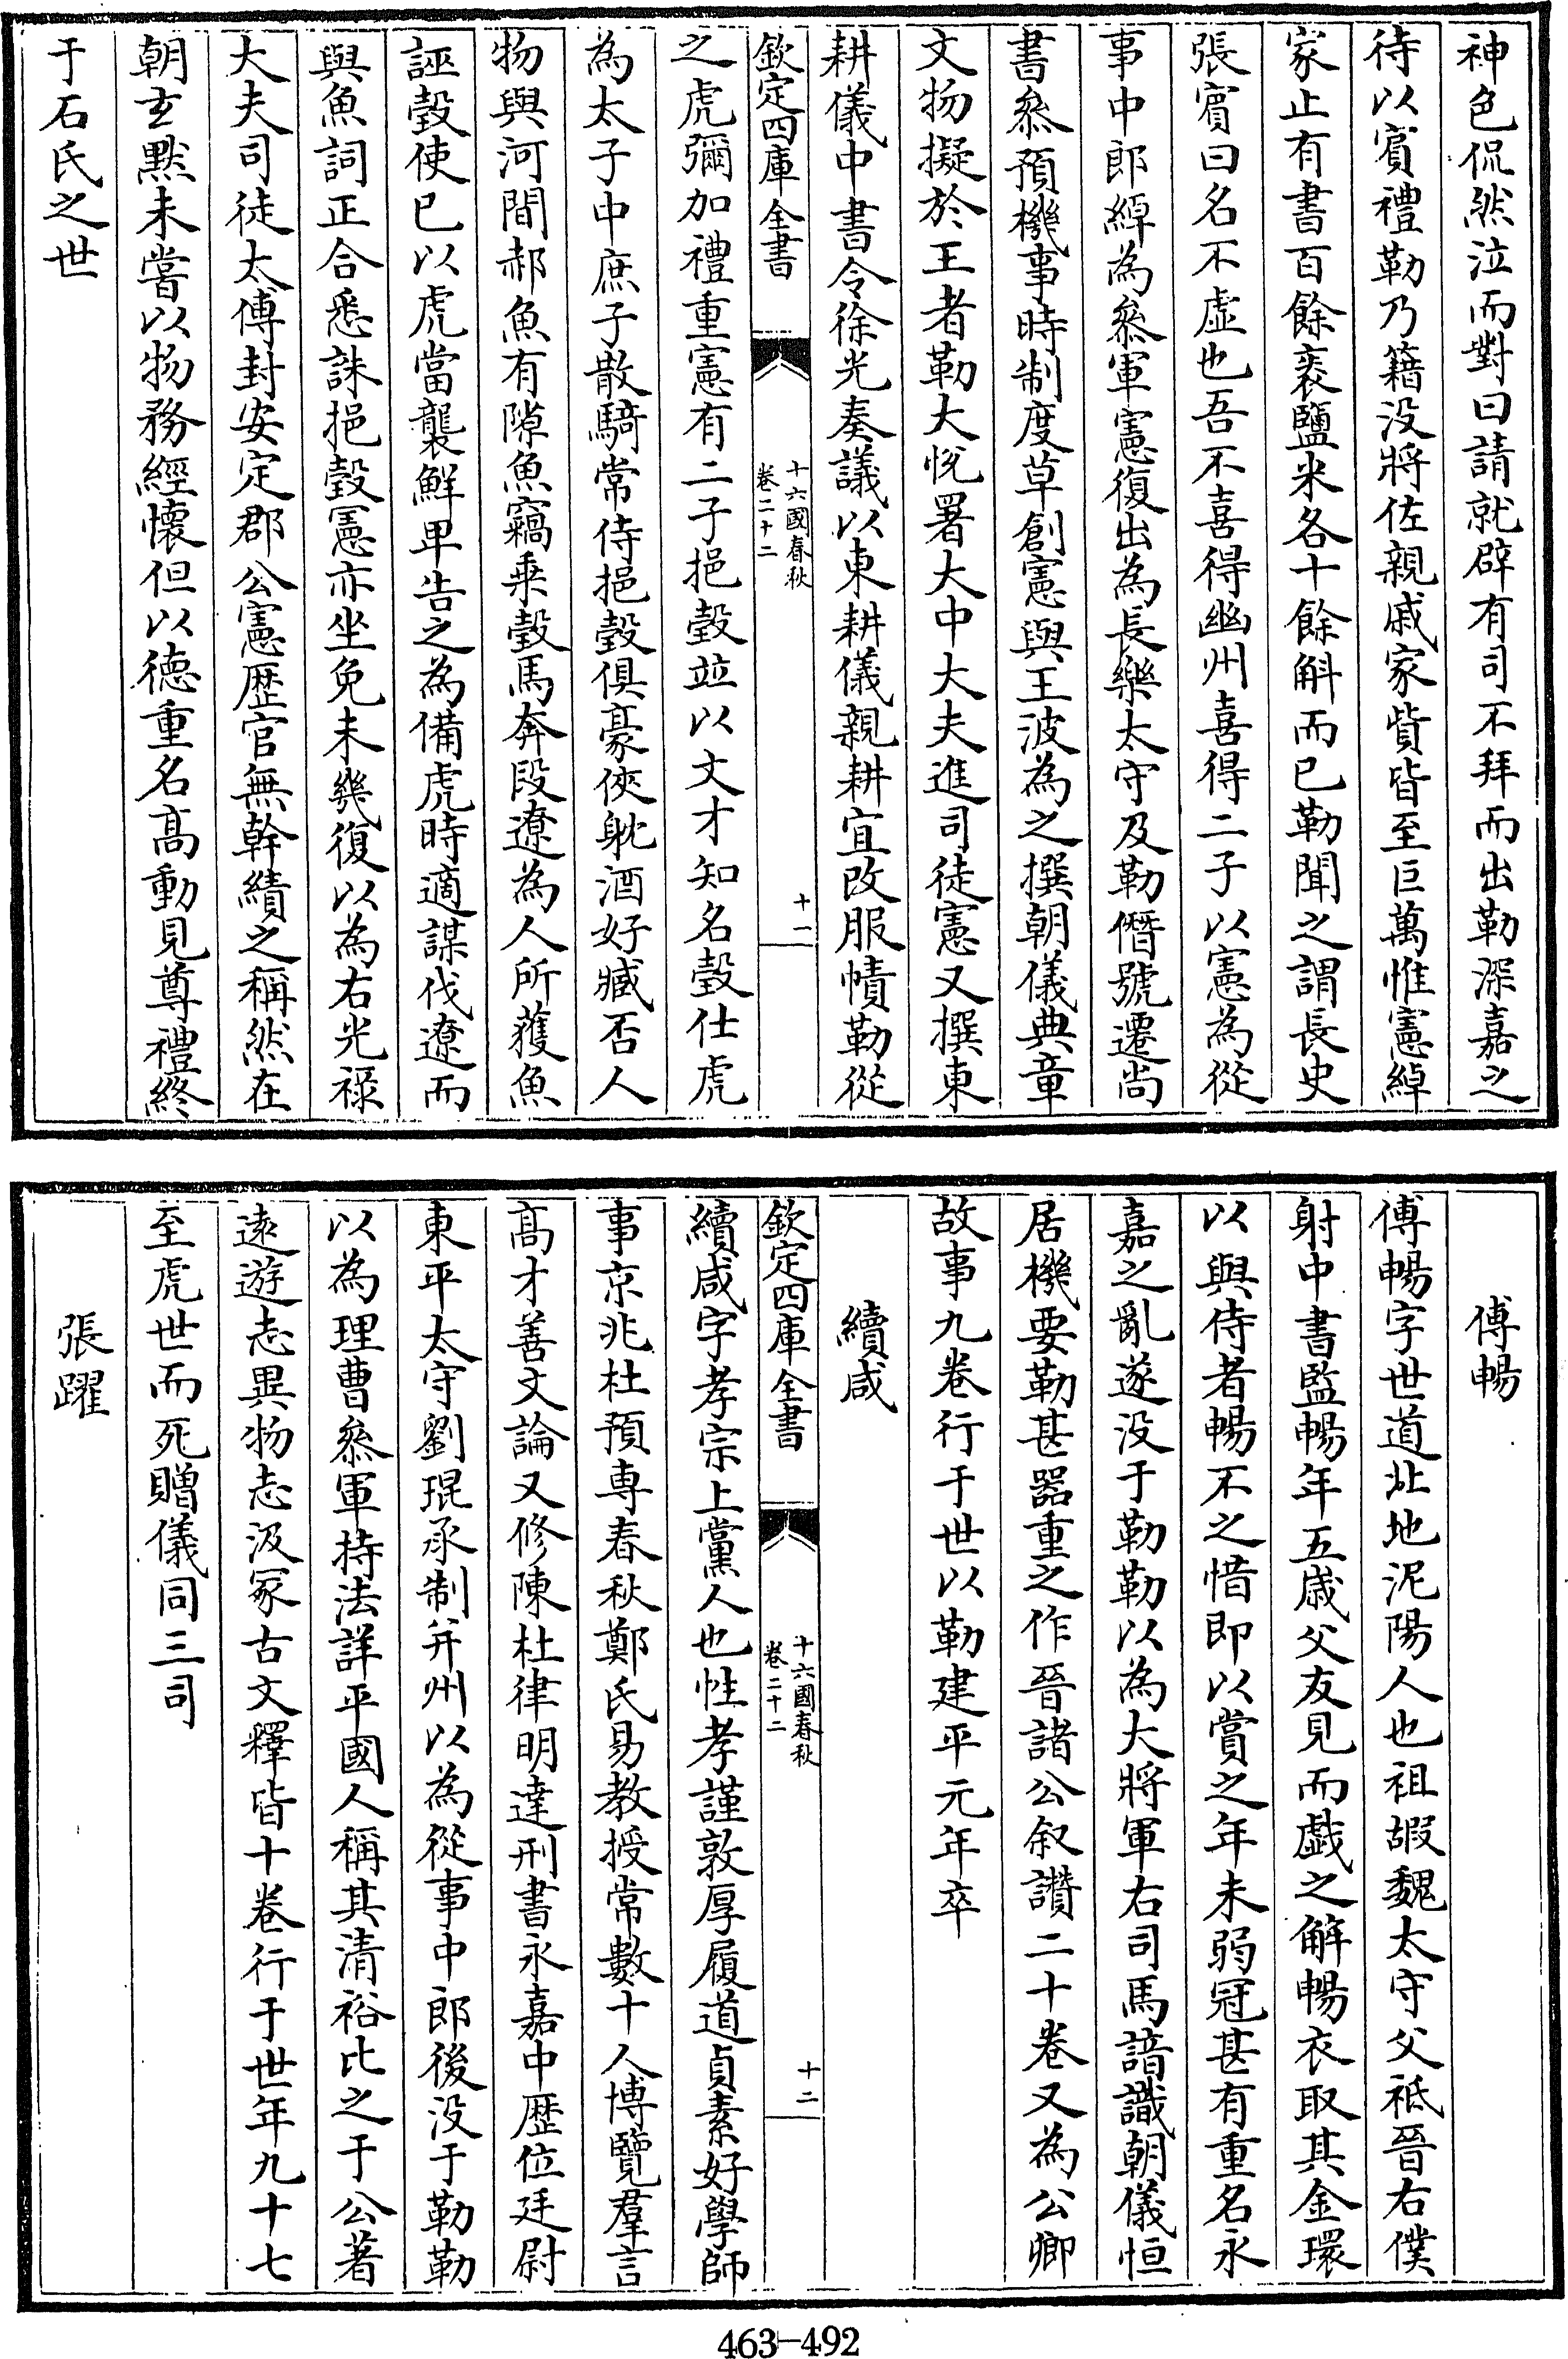 神色侃然泣而對曰請就辟有司不拜而出勒深嘉之
待以賔禮勒乃籍没將佐親戚家貲皆至巨萬惟憲綽
家止有書百餘袠鹽米各十餘斛而已勒聞之謂長史
張賔曰名不虛也吾不喜得幽州喜得二子以憲為從
事中郎綽為叅軍憲復出為長樂太守及勒僭號遷尚
書叅預機事時制度草創憲與王波為之撰朝儀典章
文物擬於王者勒大悅署大中大夫進司徒憲又撰東
耕儀中書令徐光奏議以東耕儀親耕宜改服幘勒從
欽定四庫全書
十六國春秋
卷二十二
十一
之虎彌加禮重憲有二子挹瑴並以文才知名瑴仕虎
為太子中庶子散騎常侍挹瑴俱豪俠躭酒好臧否人
物與河間郝魚有隙魚竊乗瑴馬奔段遼為人所獲魚
誣瑴使已以虎當襲鮮卑告之為備虎時適謀伐遼而
與魚詞正合悉誅挹瑴憲亦坐免未幾復以為右光祿
大夫司徒太傅封安定郡公憲歴官無幹績之稱然在
朝玄黙未嘗以物務經懐但以徳重名髙動見尊禮終
于石氏之世
傅暢
傅暢字世道北地泥陽人也祖嘏魏太守父祗晉右僕
射中書監暢年五歲父友見而戯之解暢衣取其金環
以與侍者暢不之惜即以賞之年未弱冠甚有重名永
嘉之亂遂没于勒勒以為大將軍右司馬諳識朝儀恒
居機要勒甚器重之作晉諸公叙讚二十卷又為公卿
故事九卷行于世以勒建平元年卒
續咸
欽定四庫全書
十六國春秋
卷二十二
十二
續咸字孝宗上黨人也性孝謹敦厚履道貞素好學師
事京兆杜預専春秋鄭氏易教授常數十人博覽羣言
髙才善文論又修陳杜律明達刑書永嘉中歴位廷尉
東平太守劉琨承制并州以為從事中郎後没于勒勒
以為理曹叅軍持法詳平國人稱其清裕比之于公著
逺遊志異物志汲冢古文釋皆十卷行于世年九十七
至虎世而死贈儀同三司
張躍
463-492